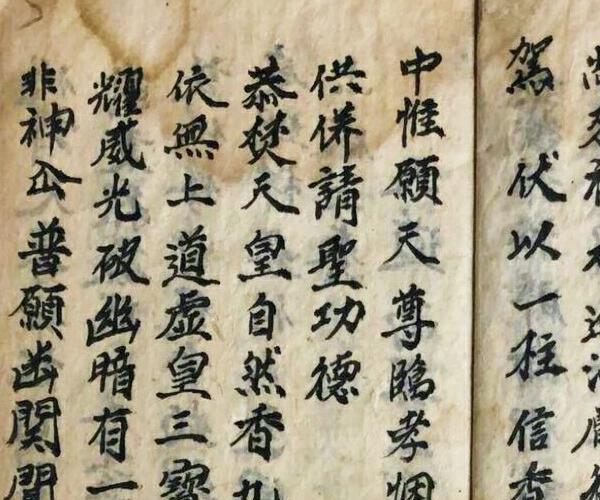 駕 伏以一柱信香
中惟願天尊臨孝烟
供併請聖功德
恭焚天皇自然香九
依無上道虛皇三寶
耀威光破幽暗有一
非神公普願幽関開